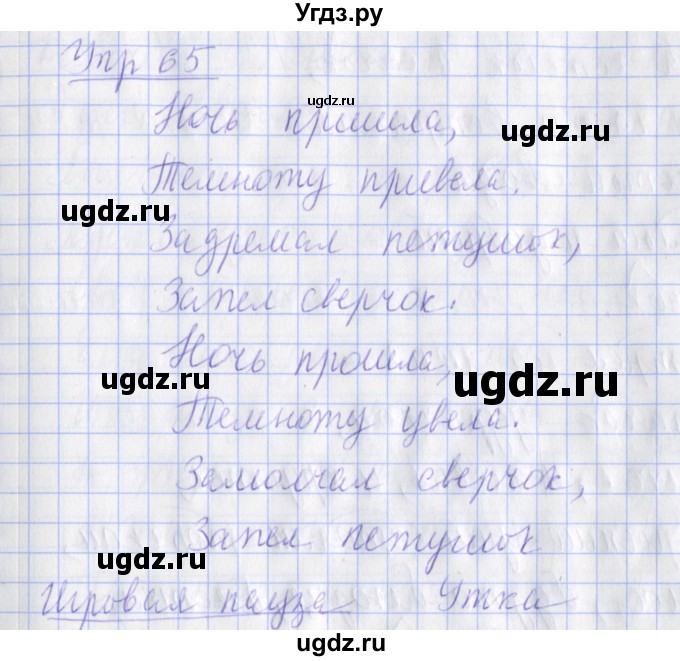 Угдз.ру
Упр 65
ugdz.ru
Ночь пришла,
ugdz.ru
Темноту привела.
ugdz.ru
Задремал петушок,
Запел сверчок.
Ночь прошла,
ugdz.ru
ugdz.ru
Темноту увела.
Замолчал сверчок,
ugdz.ru
Запел петушок
ugdz.ru
Игровая пауза Утка
ugdz.ru